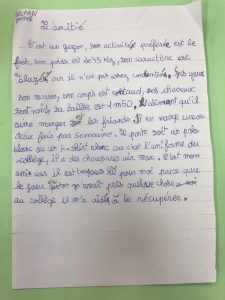 L'amitié
C'est un garçon, son activité préférée est le
foot, son poids est de 45 kg, son caractère est
car il n'est pas assez concentré. Ses yeux
son marron, son corps est costaud, ses cheveux
sont noirs, sa taille est 1m50. L'aliment qu'il
aime manger les friands il en mange encor
deux fois par semaine. Il porte soit un polo
blanc ou un t-shirt blanc car c'est l'uniforme du
collège, il a des chaussures air max. C'est mon
ami car il est toujours là pour moi parce que
le jour on avait pris quelque chose a moi
au collège il m'a aidé à le récupérer.